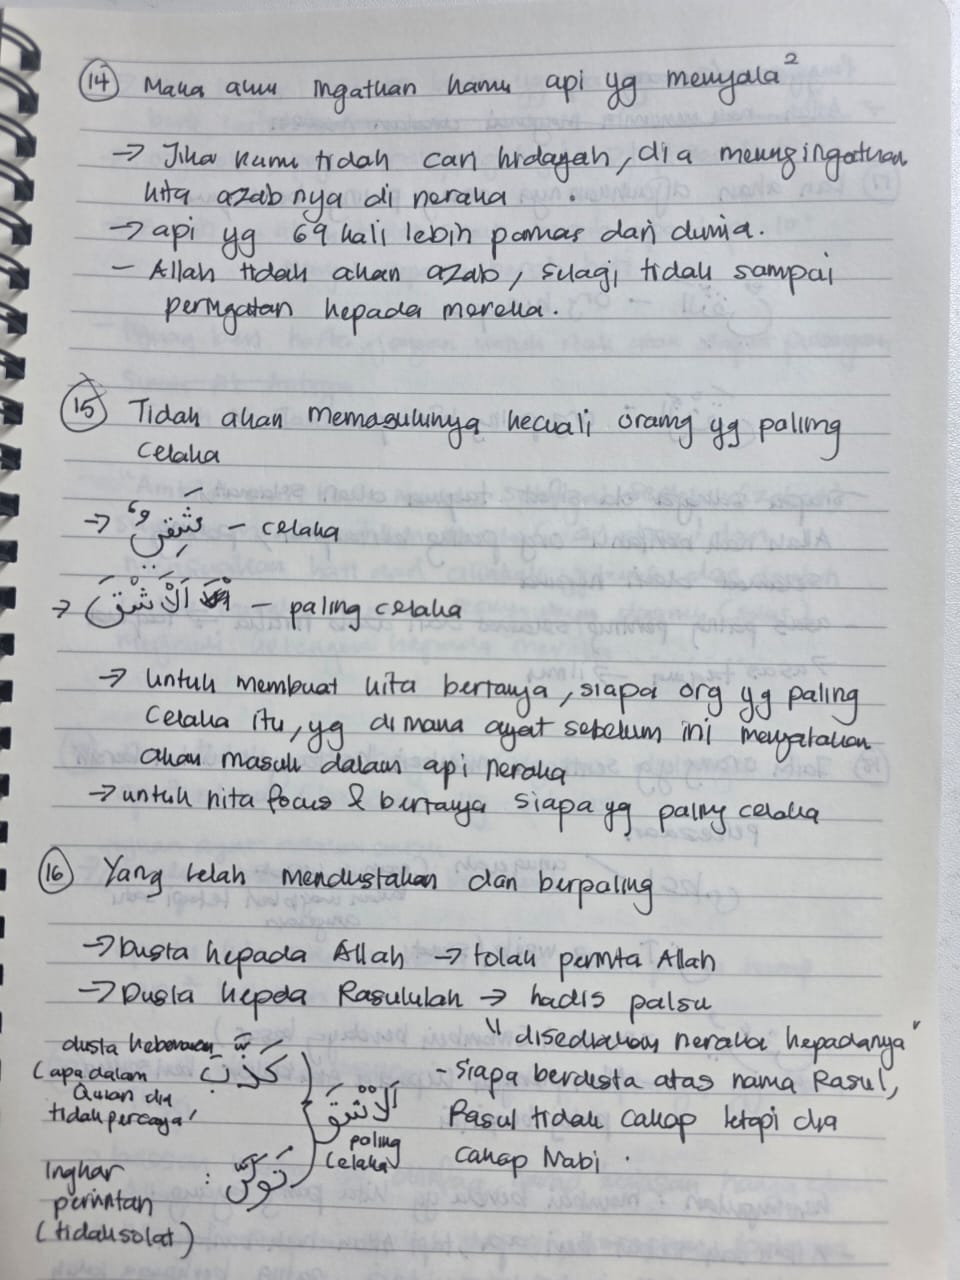 14 Maka aku ingatkan kamu api yg menyala²
→ Jika kamu tidak cari hidayah, dia mengingatkan
kita azabnya di neraka.
→ api yg 69 kali lebih panas dari dunia.
- Allah tidak akan azab, selagi tidak sampai
peringatan kepada mereka.
15 Tidak akan memasukinya kecuali orang yg paling
celaka
→ شَقِيٌّ - celaka
→ اَلْأَشْقَى - paling celaka
→ untuk membuat kita bertanya, siapa org yg paling
celaka itu, yg di mana ayat sebelum ini menyatakan
akan masuk dalam api neraka
→ untuk kita focus & bertanya siapa yg paling celaka
16 Yang telah mendustakan dan berpaling
→ Dusta kepada Allah → tolak perinta Allah
→ Dusta kepda Rasulullah → hadis palsu
"disediakan neraka kepadanya"
- siapa berdusta atas nama Rasul,
Rasul tidak cakap tetapi dia
cakap Nabi.
dusta kebenaran كَذَّبَ
(apa dalam
Quran dia
tidak percaya)
اَلْأَشْقَى
paling
celaka
Ingkar : تَوَلَّى
perintan
(tidak solat)